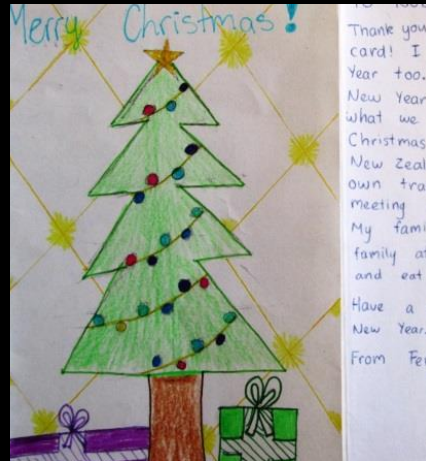 Merry Christmas!
Thank you
card! I
Year too.
New Year
what we
Christmas
New Zeal
own tra
meeting
My fami
family a
and eat
Have a
New Year.
From Fe